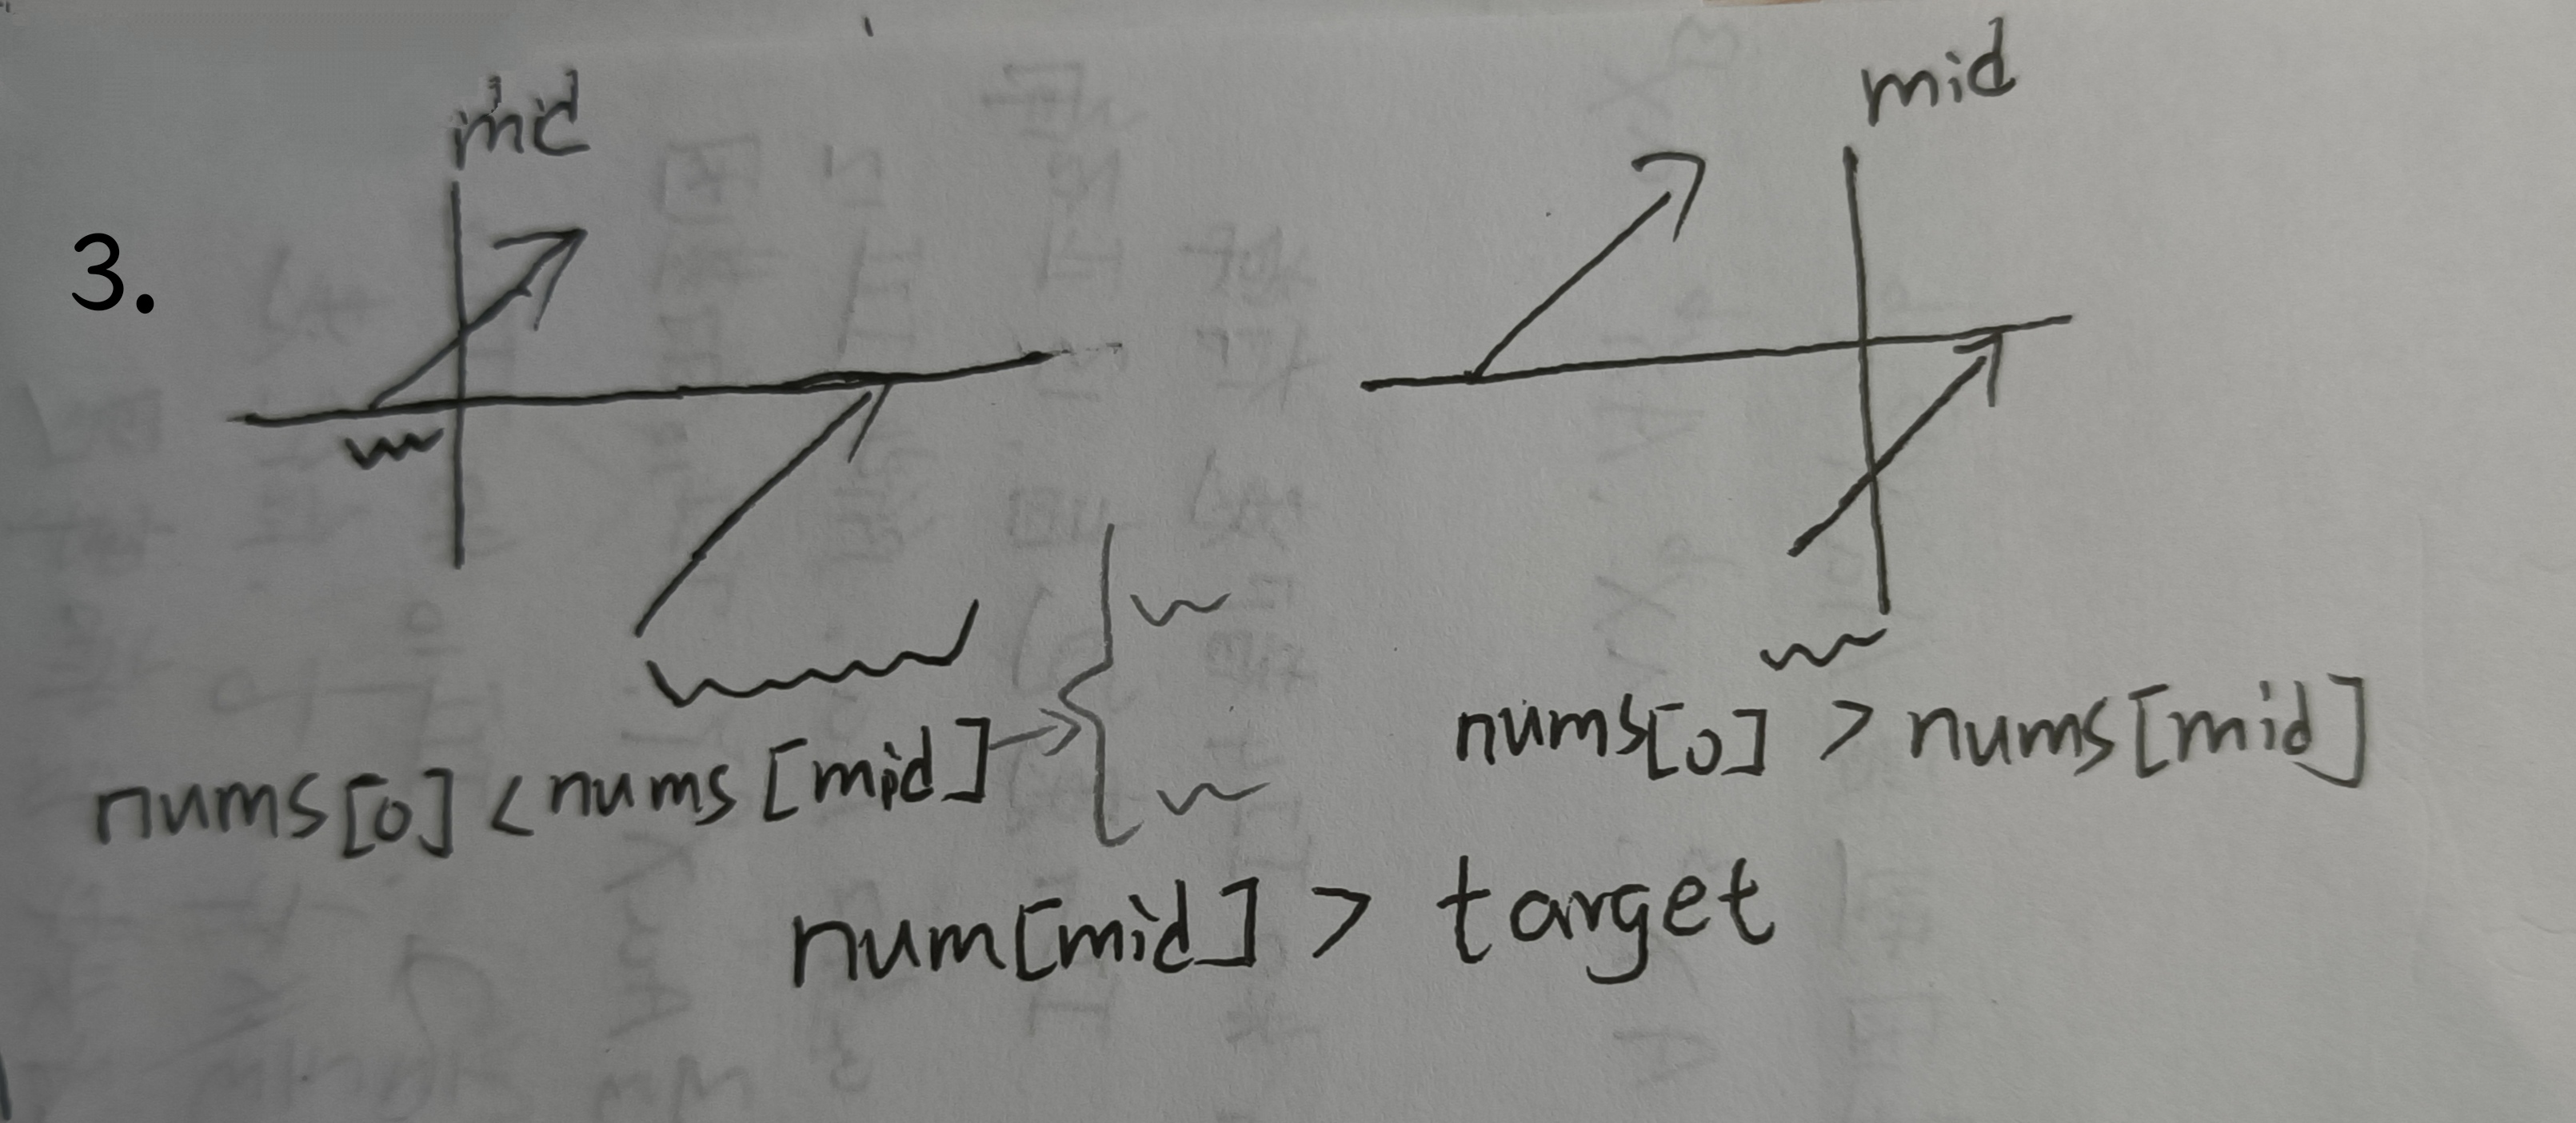 mid
mid
3.
nums[0] < nums[mid]
nums[0] > nums[mid]
num[mid] > target